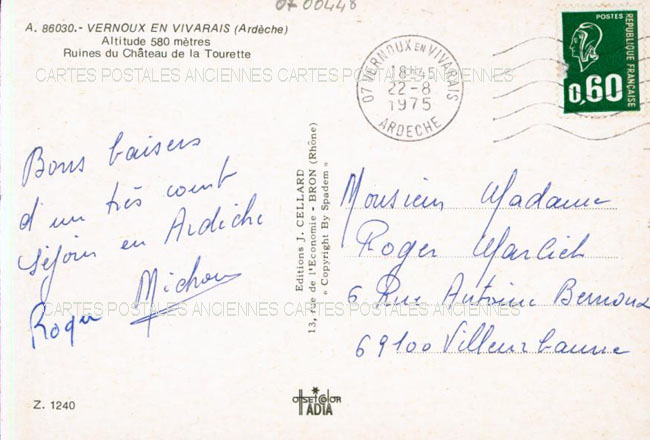 07 00448
A. 86030.- VERNOUX EN VIVARAIS (Ardèche)
Altitude 580 mètres
Ruines du Château de la Tourette
CARTES POSTALES ANCIENNES CARTES POSTALES ANCIENNES
07 VERNOUX EN VIVARAIS
18H45
22-8
1975
ARDECHE
POSTES
REPUBLIQUE FRANÇAISE
0,60
Bons baisers
d'un très court
séjour en Ardèche
Roger Michou
Editions J. CELLARD
13, rue de l'Economie - BRON (Rhône)
« Copyright By Spadem »
Monsieur Madame
Roger Marlich
6 Rue Antoine Bernoux
69100 Villeurbanne
CARTES POSTALES ANCIENNES CARTES POSTALES ANCIENNES
Z. 1240
OFFSETCOLOR
IADIA